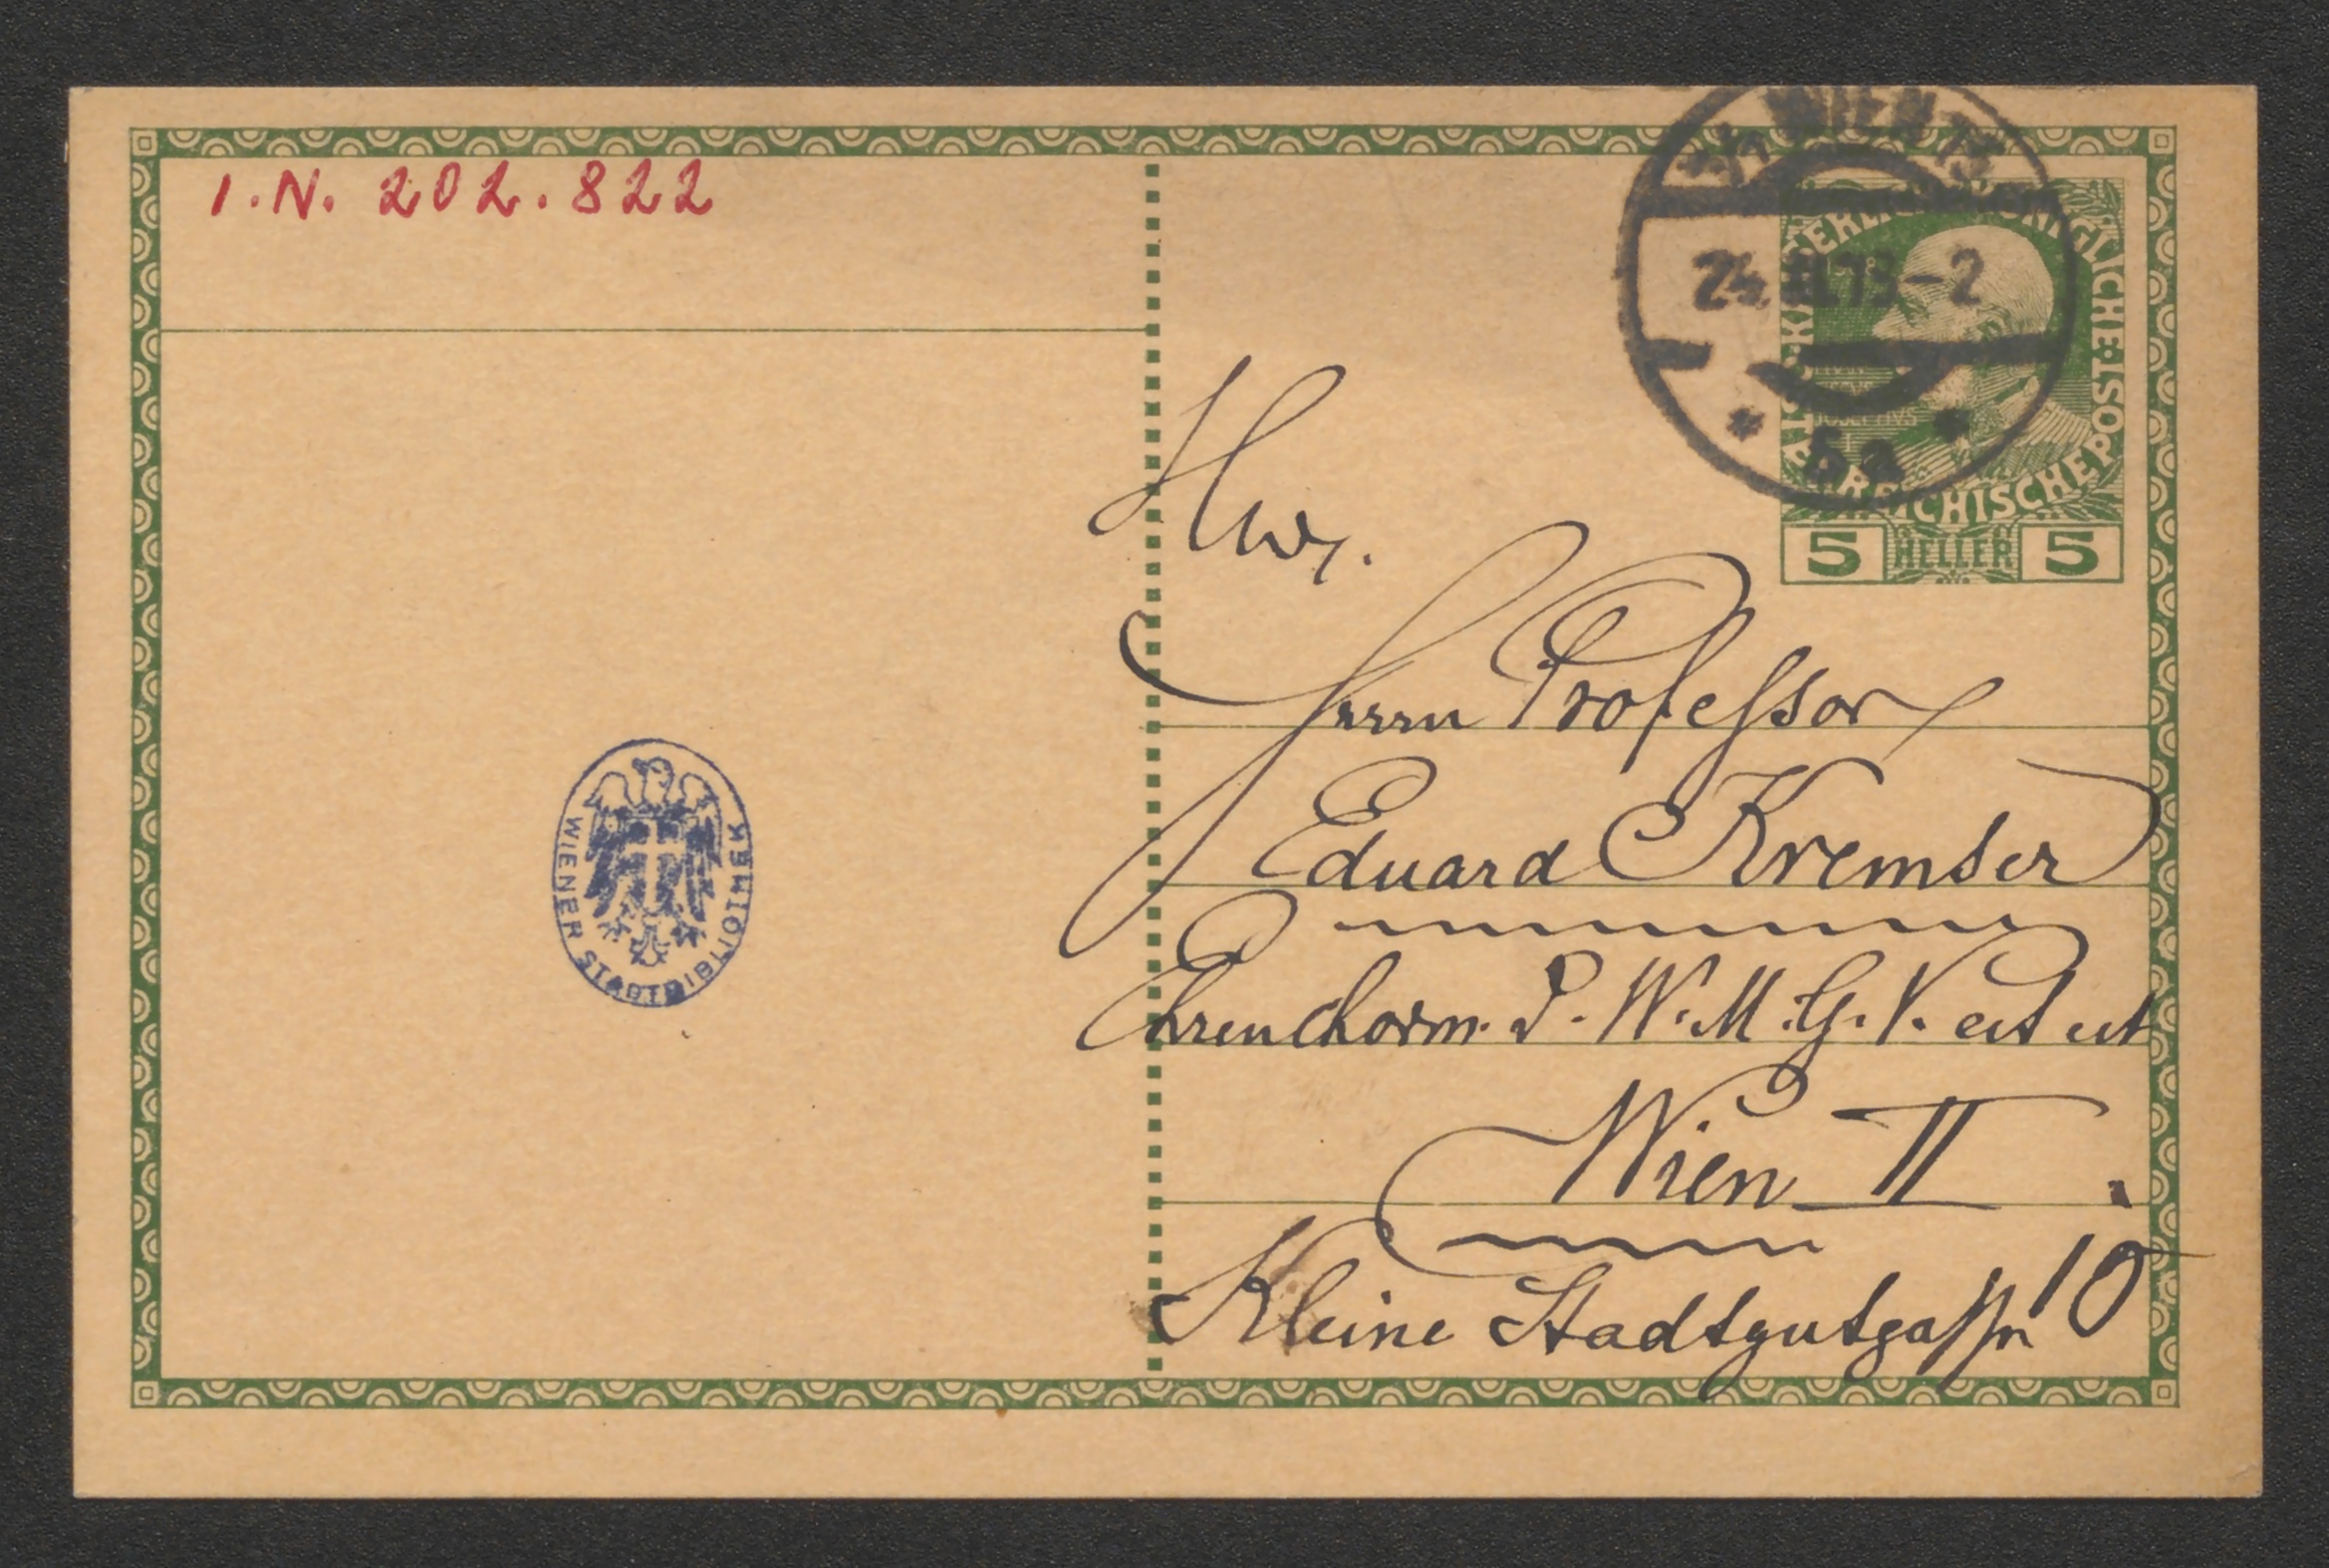 I.N. 202.822
KAISERLICHE KÖNIGLICHE ÖSTERREICHISCHE POST
1/1 WIEN
24.   13-2
5a
5 HELLER 5
Herrn Professor
Eduard Kremser
Ehrenchorm. d. W. M. G. V. ect ect
Wien II.
Kleine Stadtgutgasse 10
WIENER STADTBIBLIOTHEK